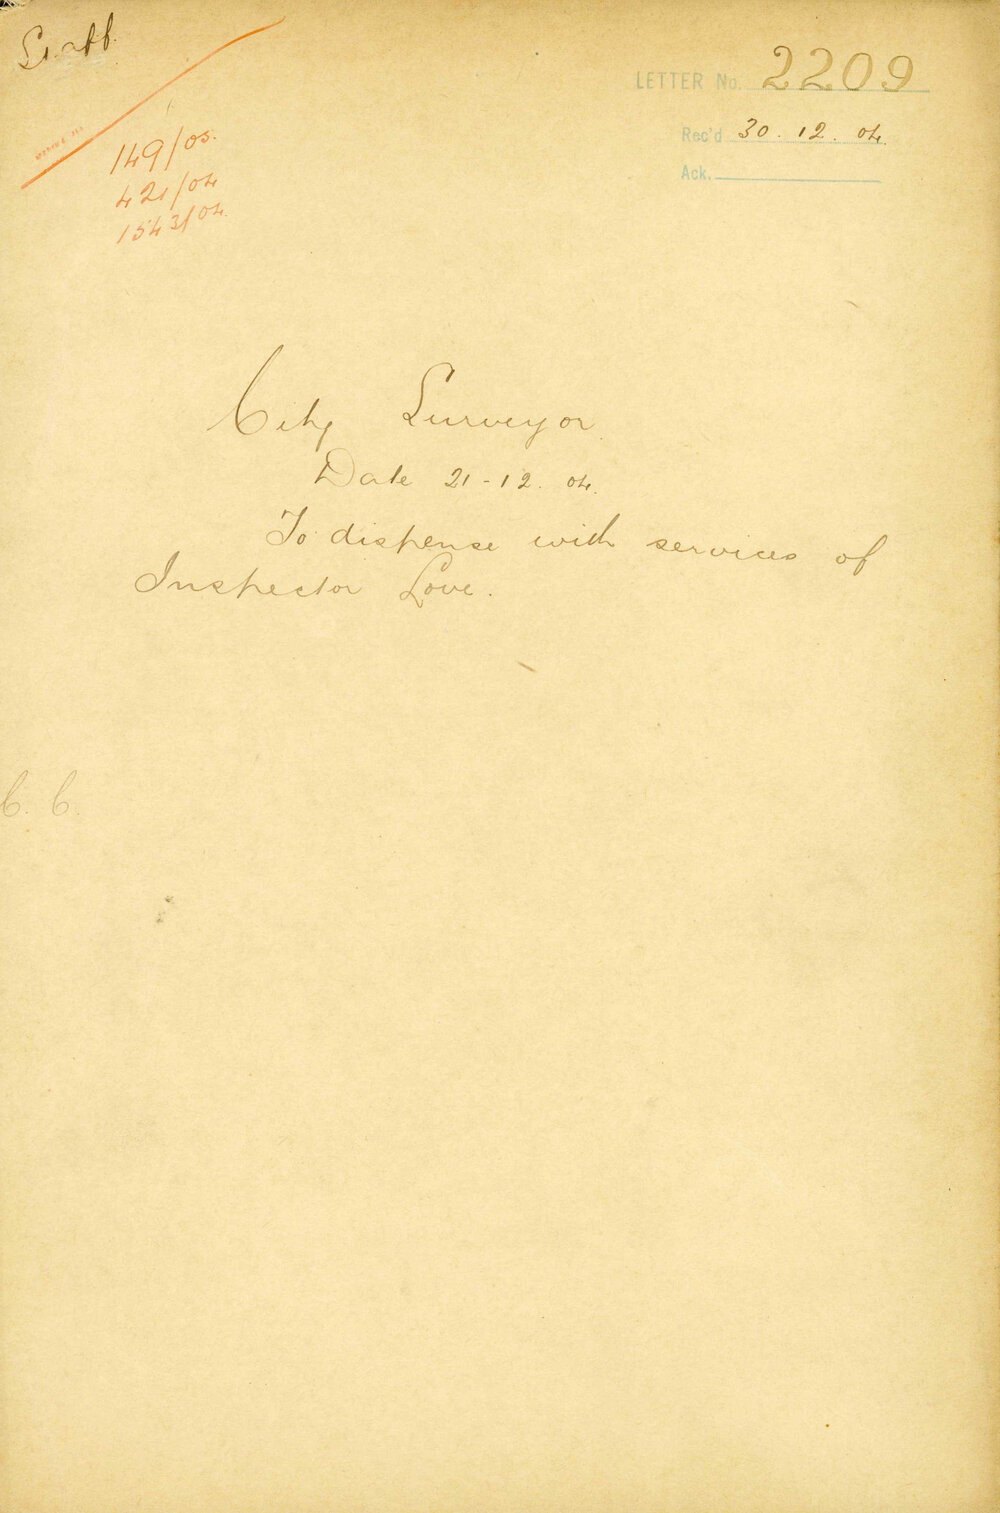 Staff.
LETTER No. 2209
Rec'd 30.12.04.
Ack.
149/05.
421/04
1543/04.
City Surveyor.
Date 21-12.04.
To dispense with services of
Inspector Love.
C. C.